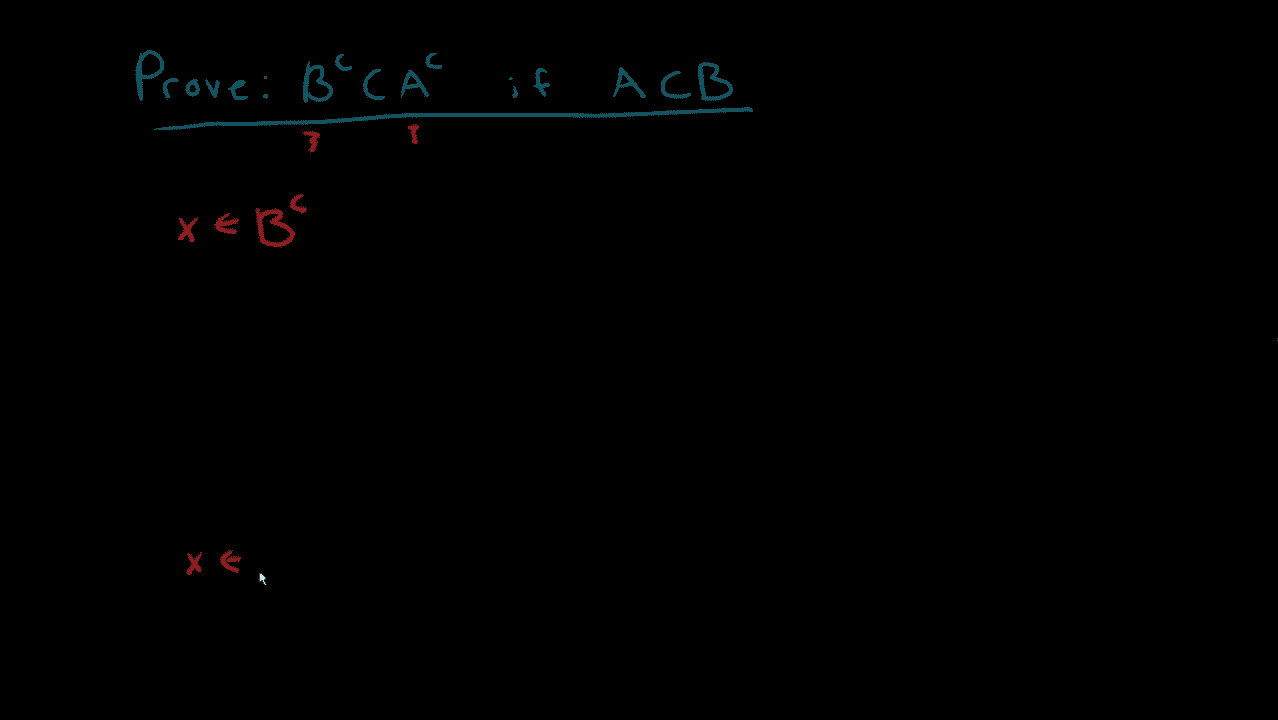 Prove: Bᶜ ⊂ Aᶜ if A ⊂ B
x ∈ Bᶜ
x ∈